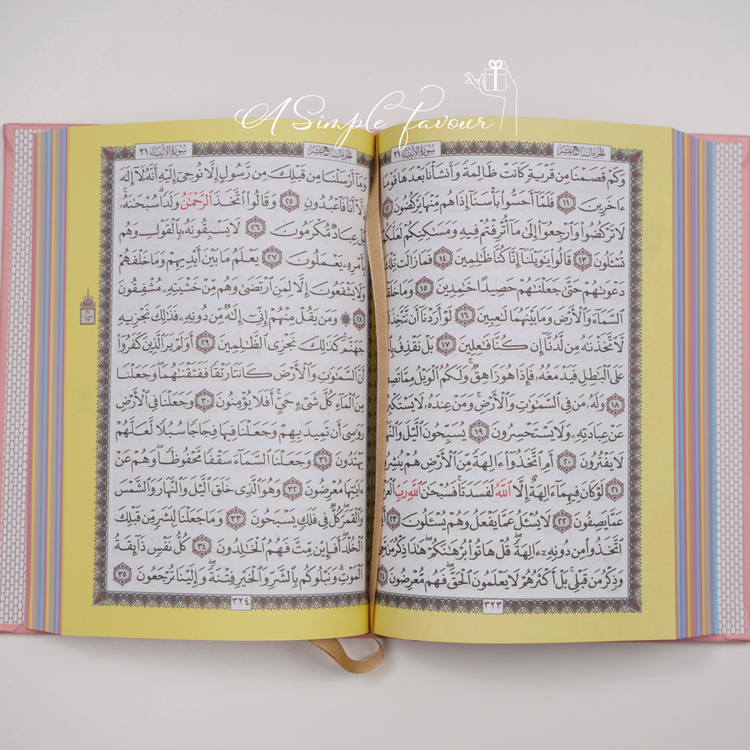 A Simple Favour
الجزء السابع عشر سورة الأنبياء ٢١
وَكَمْ قَصَمْنَا مِن قَرْيَةٍ كَانَتْ ظَالِمَةً وَأَنشَأْنَا بَعْدَهَا قَوْمًا
ءَاخَرِينَ ١١ فَلَمَّآ أَحَسُّوا۟ بَأْسَنَآ إِذَا هُم مِّنْهَا يَرْكُضُونَ
لَا تَرْكُضُوا۟ وَٱرْجِعُوٓا۟ إِلَىٰ مَآ أُتْرِفْتُمْ فِيهِ وَمَسَٰكِنِكُمْ لَعَلَّكُمْ
تُسْـَٔلُونَ ١٣ قَالُوا۟ يَٰوَيْلَنَآ إِنَّا كُنَّا ظَٰلِمِينَ ١٤ فَمَا زَالَت
دَعْوَىٰهُمْ حَتَّىٰ جَعَلْنَٰهُمْ حَصِيدًا خَٰمِدِينَ ١٥ وَمَا
ٱلسَّمَآءَ وَٱلْأَرْضَ وَمَا بَيْنَهُمَا لَٰعِبِينَ ١٦ لَوْ أَرَدْنَآ أَن
لَّٱتَّخَذْنَٰهُ مِن لَّدُنَّآ إِن كُنَّا فَٰعِلِينَ ١٧ بَلْ نَقْذِفُ
عَلَى ٱلْبَٰطِلِ فَيَدْمَغُهُۥ فَإِذَا هُوَ زَاهِقٌ وَلَكُمُ ٱلْوَيْلُ مِمَّا
١٨ وَلَهُۥ مَن فِى ٱلسَّمَٰوَٰتِ وَٱلْأَرْضِ وَمَنْ عِندَهُۥ لَا
عَنْ عِبَادَتِهِۦ وَلَا يَسْتَحْسِرُونَ ١٩ يُسَبِّحُونَ ٱلَّيْلَ
لَا يَفْتُرُونَ ٢٠ أَمِ ٱتَّخَذُوٓا۟ ءَالِهَةً مِّنَ ٱلْأَرْضِ هُمْ
٢١ لَوْ كَانَ فِيهِمَآ ءَالِهَةٌ إِلَّا ٱللَّهُ لَفَسَدَتَا فَسُبْحَٰنَ ٱللَّهِ رَبِّ
عَمَّا يَصِفُونَ ٢٢ لَا يُسْـَٔلُ عَمَّا يَفْعَلُ وَهُمْ يُسْـَٔلُونَ ٢٣
ٱتَّخَذُوا۟ مِن دُونِهِۦٓ ءَالِهَةً قُلْ هَاتُوا۟ بُرْهَٰنَكُمْ هَٰذَا ذِكْرُ مَن
وَذِكْرُ مَن قَبْلِى بَلْ أَكْثَرُهُمْ لَا يَعْلَمُونَ ٱلْحَقَّ فَهُم مُّعْرِضُونَ ٢٤
٣٢٣
الجزء السابع عشر سورة الأنبياء ٢١
وَمَآ أَرْسَلْنَا مِن قَبْلِكَ مِن رَّسُولٍ إِلَّا نُوحِىٓ إِلَيْهِ أَنَّهُۥ لَآ إِلَٰهَ
إِلَّآ أَنَا۠ فَٱعْبُدُونِ ٢٥ وَقَالُوا۟ ٱتَّخَذَ ٱلرَّحْمَٰنُ وَلَدًا سُبْحَٰنَهُۥ
بَلْ عِبَادٌ مُّكْرَمُونَ ٢٦ لَا يَسْبِقُونَهُۥ بِٱلْقَوْلِ وَهُم
بِأَمْرِهِۦ يَعْمَلُونَ ٢٧ يَعْلَمُ مَا بَيْنَ أَيْدِيهِمْ وَمَا خَلْفَهُمْ
وَلَا يَشْفَعُونَ إِلَّا لِمَنِ ٱرْتَضَىٰ وَهُم مِّنْ خَشْيَتِهِۦ مُشْفِقُونَ
٢٨ ۞ وَمَن يَقُلْ مِنْهُمْ إِنِّىٓ إِلَٰهٌ مِّن دُونِهِۦ فَذَٰلِكَ نَجْزِيهِ
جَهَنَّمَ كَذَٰلِكَ نَجْزِى ٱلظَّٰلِمِينَ ٢٩ أَوَلَمْ يَرَ ٱلَّذِينَ كَفَرُوٓا۟
أَنَّ ٱلسَّمَٰوَٰتِ وَٱلْأَرْضَ كَانَتَا رَتْقًا فَفَتَقْنَٰهُمَا وَجَعَلْنَا
مِنَ ٱلْمَآءِ كُلَّ شَىْءٍ حَىٍّ أَفَلَا يُؤْمِنُونَ ٣٠ وَجَعَلْنَا فِى ٱلْأَرْضِ
رَوَٰسِىَ أَن تَمِيدَ بِهِمْ وَجَعَلْنَا فِيهَا فِجَاجًا سُبُلًا لَّعَلَّهُمْ
يَهْتَدُونَ ٣١ وَجَعَلْنَا ٱلسَّمَآءَ سَقْفًا مَّحْفُوظًا وَهُمْ عَنْ
ءَايَٰتِهَا مُعْرِضُونَ ٣٢ وَهُوَ ٱلَّذِى خَلَقَ ٱلَّيْلَ وَٱلنَّهَارَ وَٱلشَّمْسَ
وَٱلْقَمَرَ كُلٌّ فِى فَلَكٍ يَسْبَحُونَ ٣٣ وَمَا جَعَلْنَا لِبَشَرٍ مِّن قَبْلِكَ
ٱلْخُلْدَ أَفَإِي۟ن مِّتَّ فَهُمُ ٱلْخَٰلِدُونَ ٣٤ كُلُّ نَفْسٍ ذَآئِقَةُ
ٱلْمَوْتِ وَنَبْلُوكُم بِٱلشَّرِّ وَٱلْخَيْرِ فِتْنَةً وَإِلَيْنَا تُرْجَعُونَ ٣٥
٣٢٤